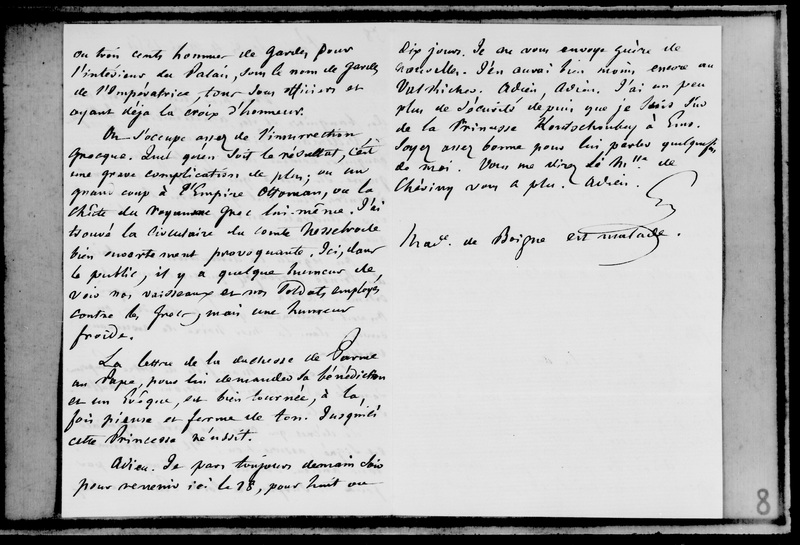 ou trois cents hommes de Gardes pour
l'intérieur du Palais, sous le nom de Gardes
de l'Impératrice, tous Sous officiers et
ayant déja la croix d'honneur.
On s'occupe assez de l'insurrection
grecque. Quel qu'en soit le résultat, c'est
une grave complication de plus; ou un
grand coup à l'Empire Ottoman, ou la
chûte du royaume grec lui-même. J'ai
trouvé la circulaire du comte Nesselrode
bien ouvertement provoquante. Ici, dans
le public, il y a quelque humeur de
voir nos vaisseaux et nos soldats employés
contre les grecs, mais une humeur
froide.
La lettre de la duchesse de Parme
au Pape, pour lui demander sa bénédiction
et un Evêque, est bien tournée, à la
fois pieuse et ferme de ton. Jusqu'ici
cette Princesse réussit.
Adieu. Je pars toujours demain soir
pour revenir ici le 28, pour huit ou
dix jours. Je ne vous envoye guère de
nouvelles. J'en aurai bien moins encore au
Val Richer. Adieu, Adieu. J'ai un peu
plus de sécurité depuis que je sais
de la Princesse Kotschoubey à Ems.
Soyez assez bonne pour lui parler quelquefois
de moi. Vous me direz si Mlle de
Chériny vous a plu. Adieu.
Mad. de Boigne est malade.
8